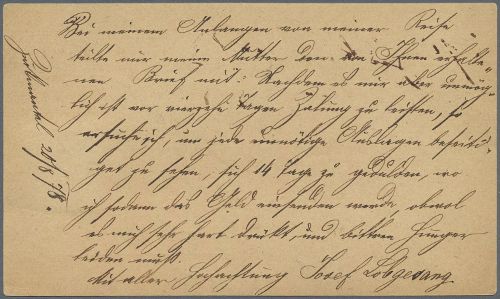 Bei meinem Anlangen von meiner Reise
teilte mir meine Mutter den von Ihnen erhalte-
nen Brief mit. Nachdem es mir aber unmög-
lich ist vor vierzehn Tagen Zalung zu leisten, so
ersuche ich, um jede unnötige Auslagen beseiti-
get zu sehen, sich 14 Tage zu gedulden, wo
ich sodann das Geld einsenden werde obwol
es mich sehr hart drückt, und bittern Hunger
leiden muß.
Mit aller Hochachtung Josef Lobgesang
24/8 78.